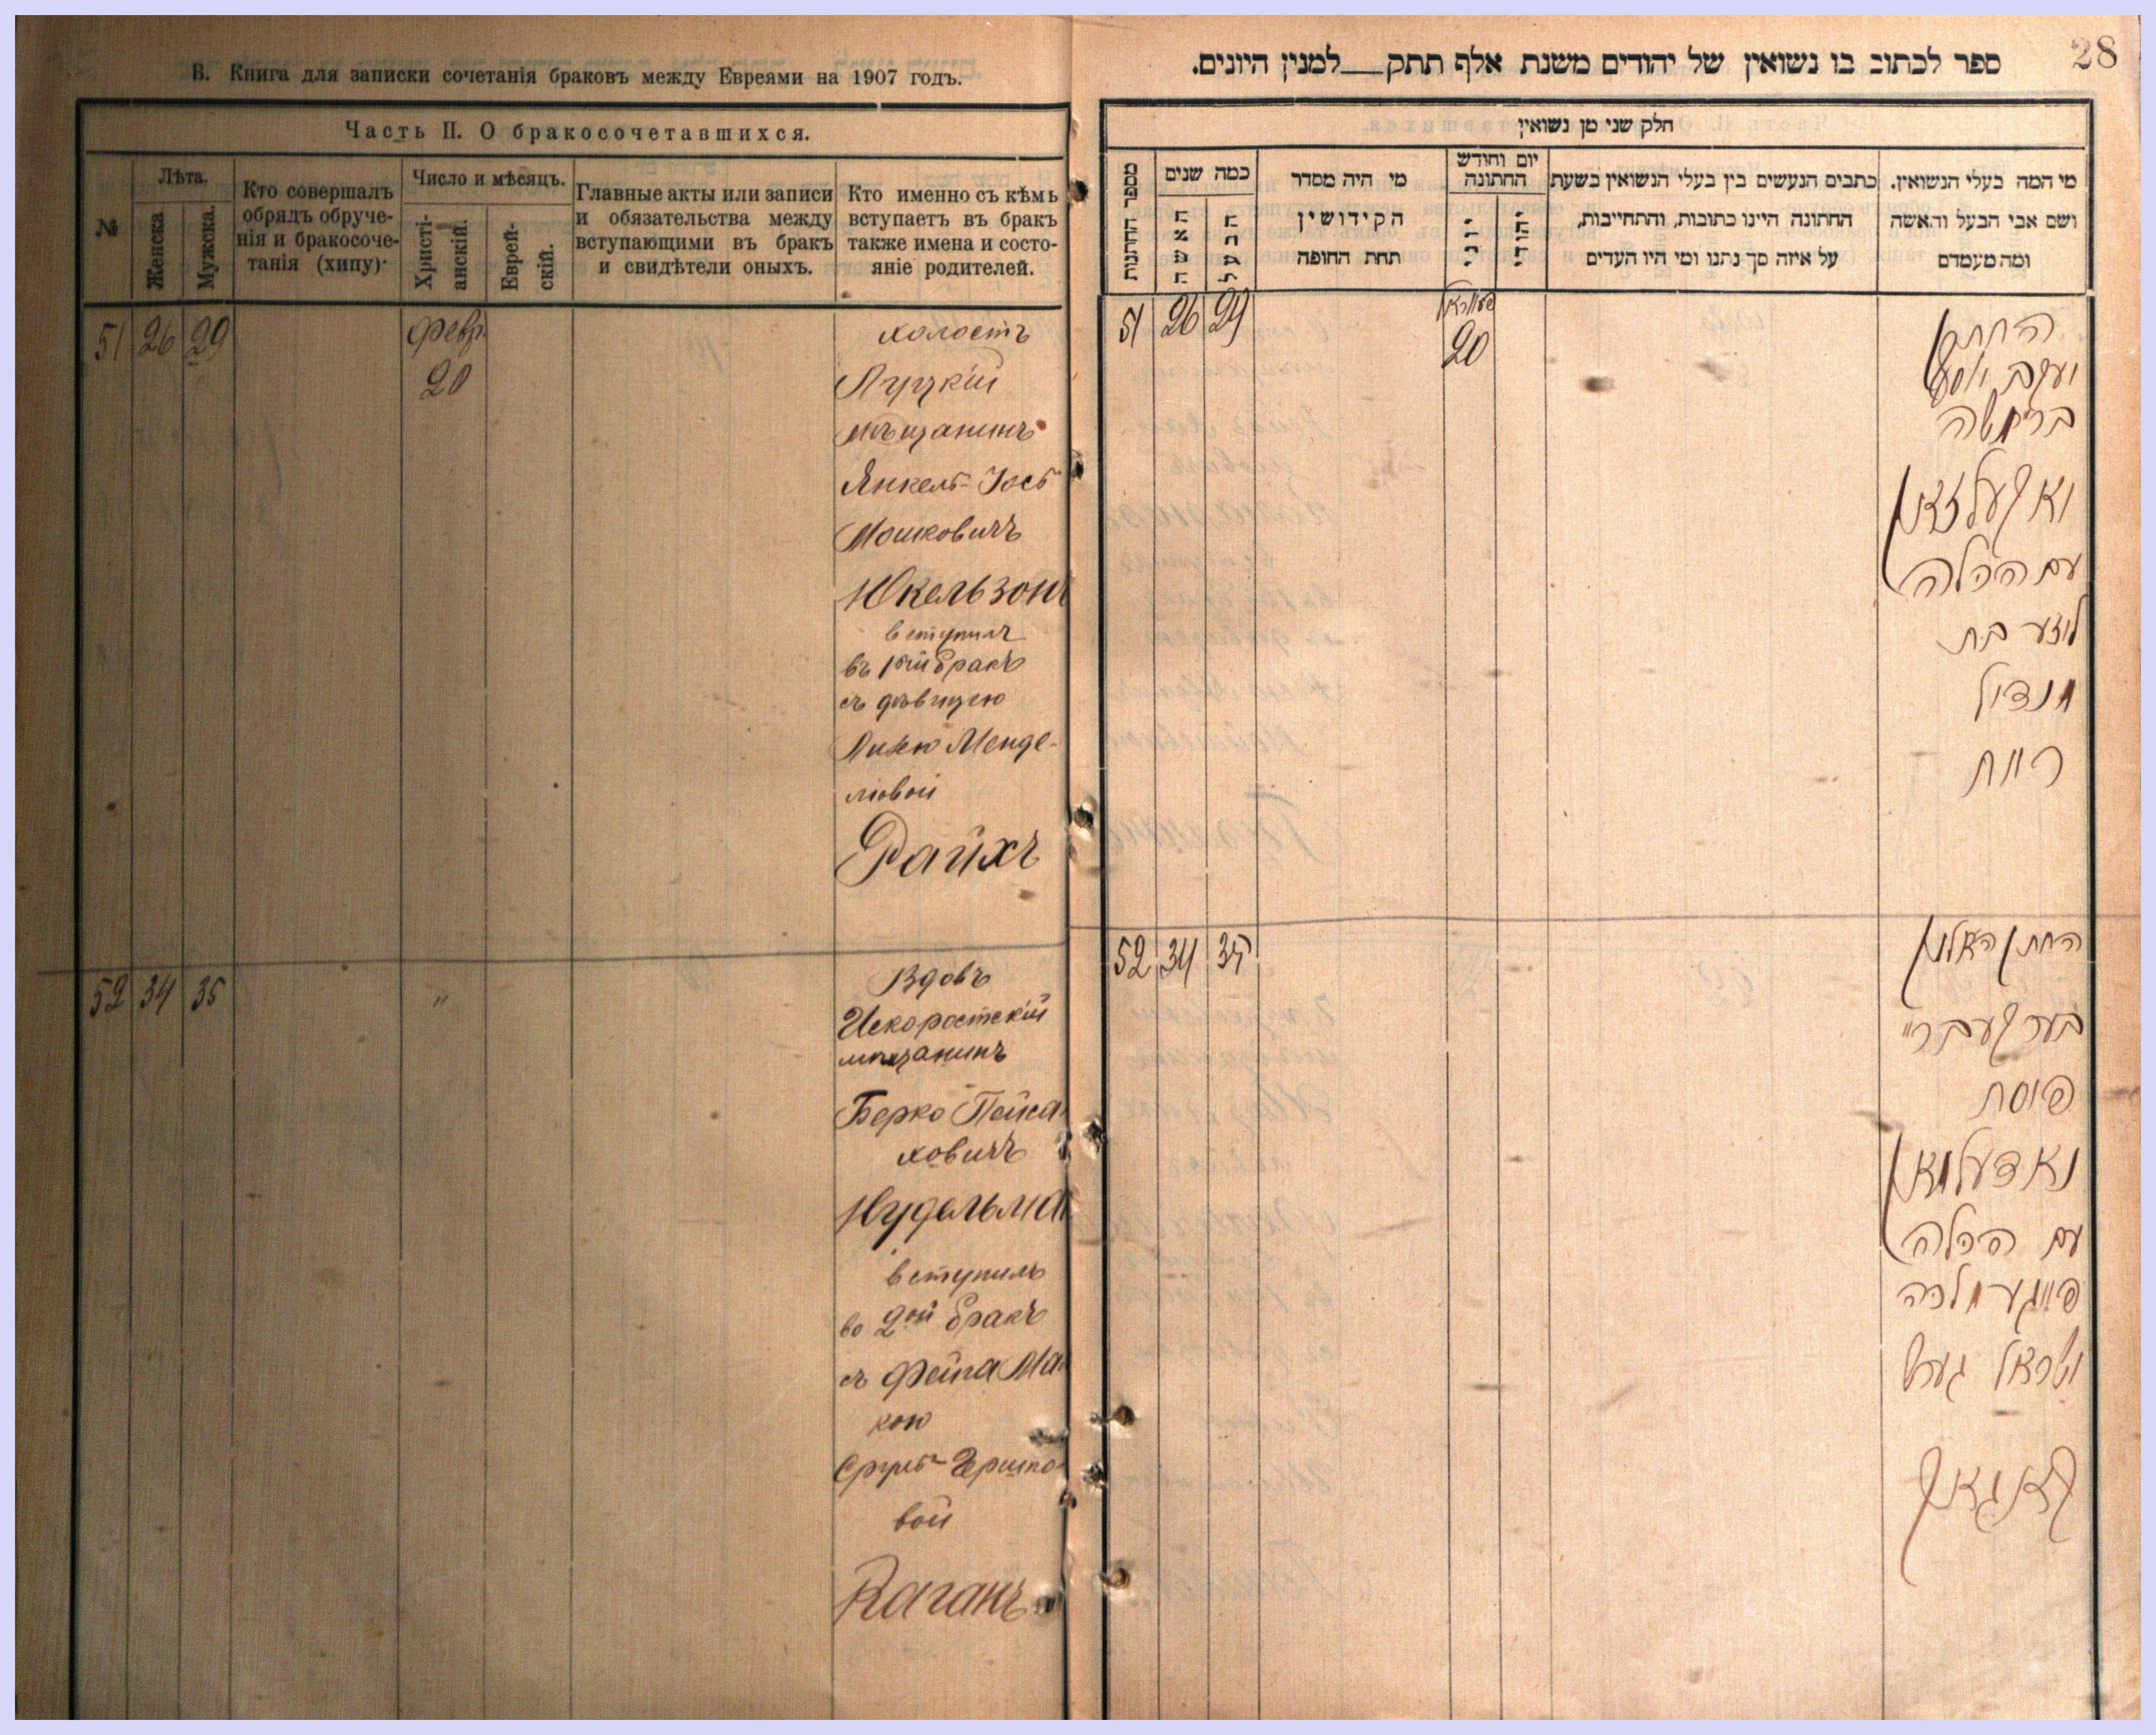 В. Книга для записки сочетанія браковъ между Евреями на 1907 годъ.
Часть II. О бракосочетавшихся.
№
Лѣта.
Женска
Мужска.
Кто совершалъ
обрядъ обруче-
нія и бракосоче-
танія (хипу)·
Число и мѣсяцъ.
Христі-
анскій.
Еврей-
скій.
Главные акты или записи
и обязательства между
вступающими въ бракъ
и свидѣтели оныхъ.
Кто именно съ кѣмъ
вступаетъ въ бракъ
также имена и состо-
яніе родителей.
51 26 29 Февр. холостъ
20 Луцкій
мѣщанинъ
Янкель-Іосъ
Мошковичъ
Юкельзонъ
вступил
въ 1ый бракъ
съ дѣвицею
Менде-
левой
Райхъ
52 34 35 " Вдовъ
Искоростскій
мѣщанинъ
Берко Пейса
ховичъ
Нудельма
вступилъ
во 2ой бракъ
съ Фейга Ма
кою
Сруль-Гершко
вой
Каганъ
28
ספר לכתוב בו נשואין של יהודים משנת אלף תתק__למנין היונים.
חלק שני מן נשואין
מספר החתונות
כמה שנים
האשה
הבעל
מי היה מסדר
הקידושין
תחת החופה
יום וחודש
החתונה
יוני
יהודי
כתבים הנעשים בין בעלי הנשואין בשעת
החתונה היינו כתובות, והתחייבות,
על איזה סך נתנו ומי היו העדים
מי המה בעלי הנשואין.
ושם אבי הבעל והאשה
ומה מעמדם
51 26 29 20 החתן
יעקב יוסף
בר משה
יאקעלזאן
עם הכלה
בת
מנדיל
רייח
52 34 35 החתן האלמן
בער
פסח
נאדעלמאן
עם הכלה
פייגע מלכה
ישראל גערש
קאגאן